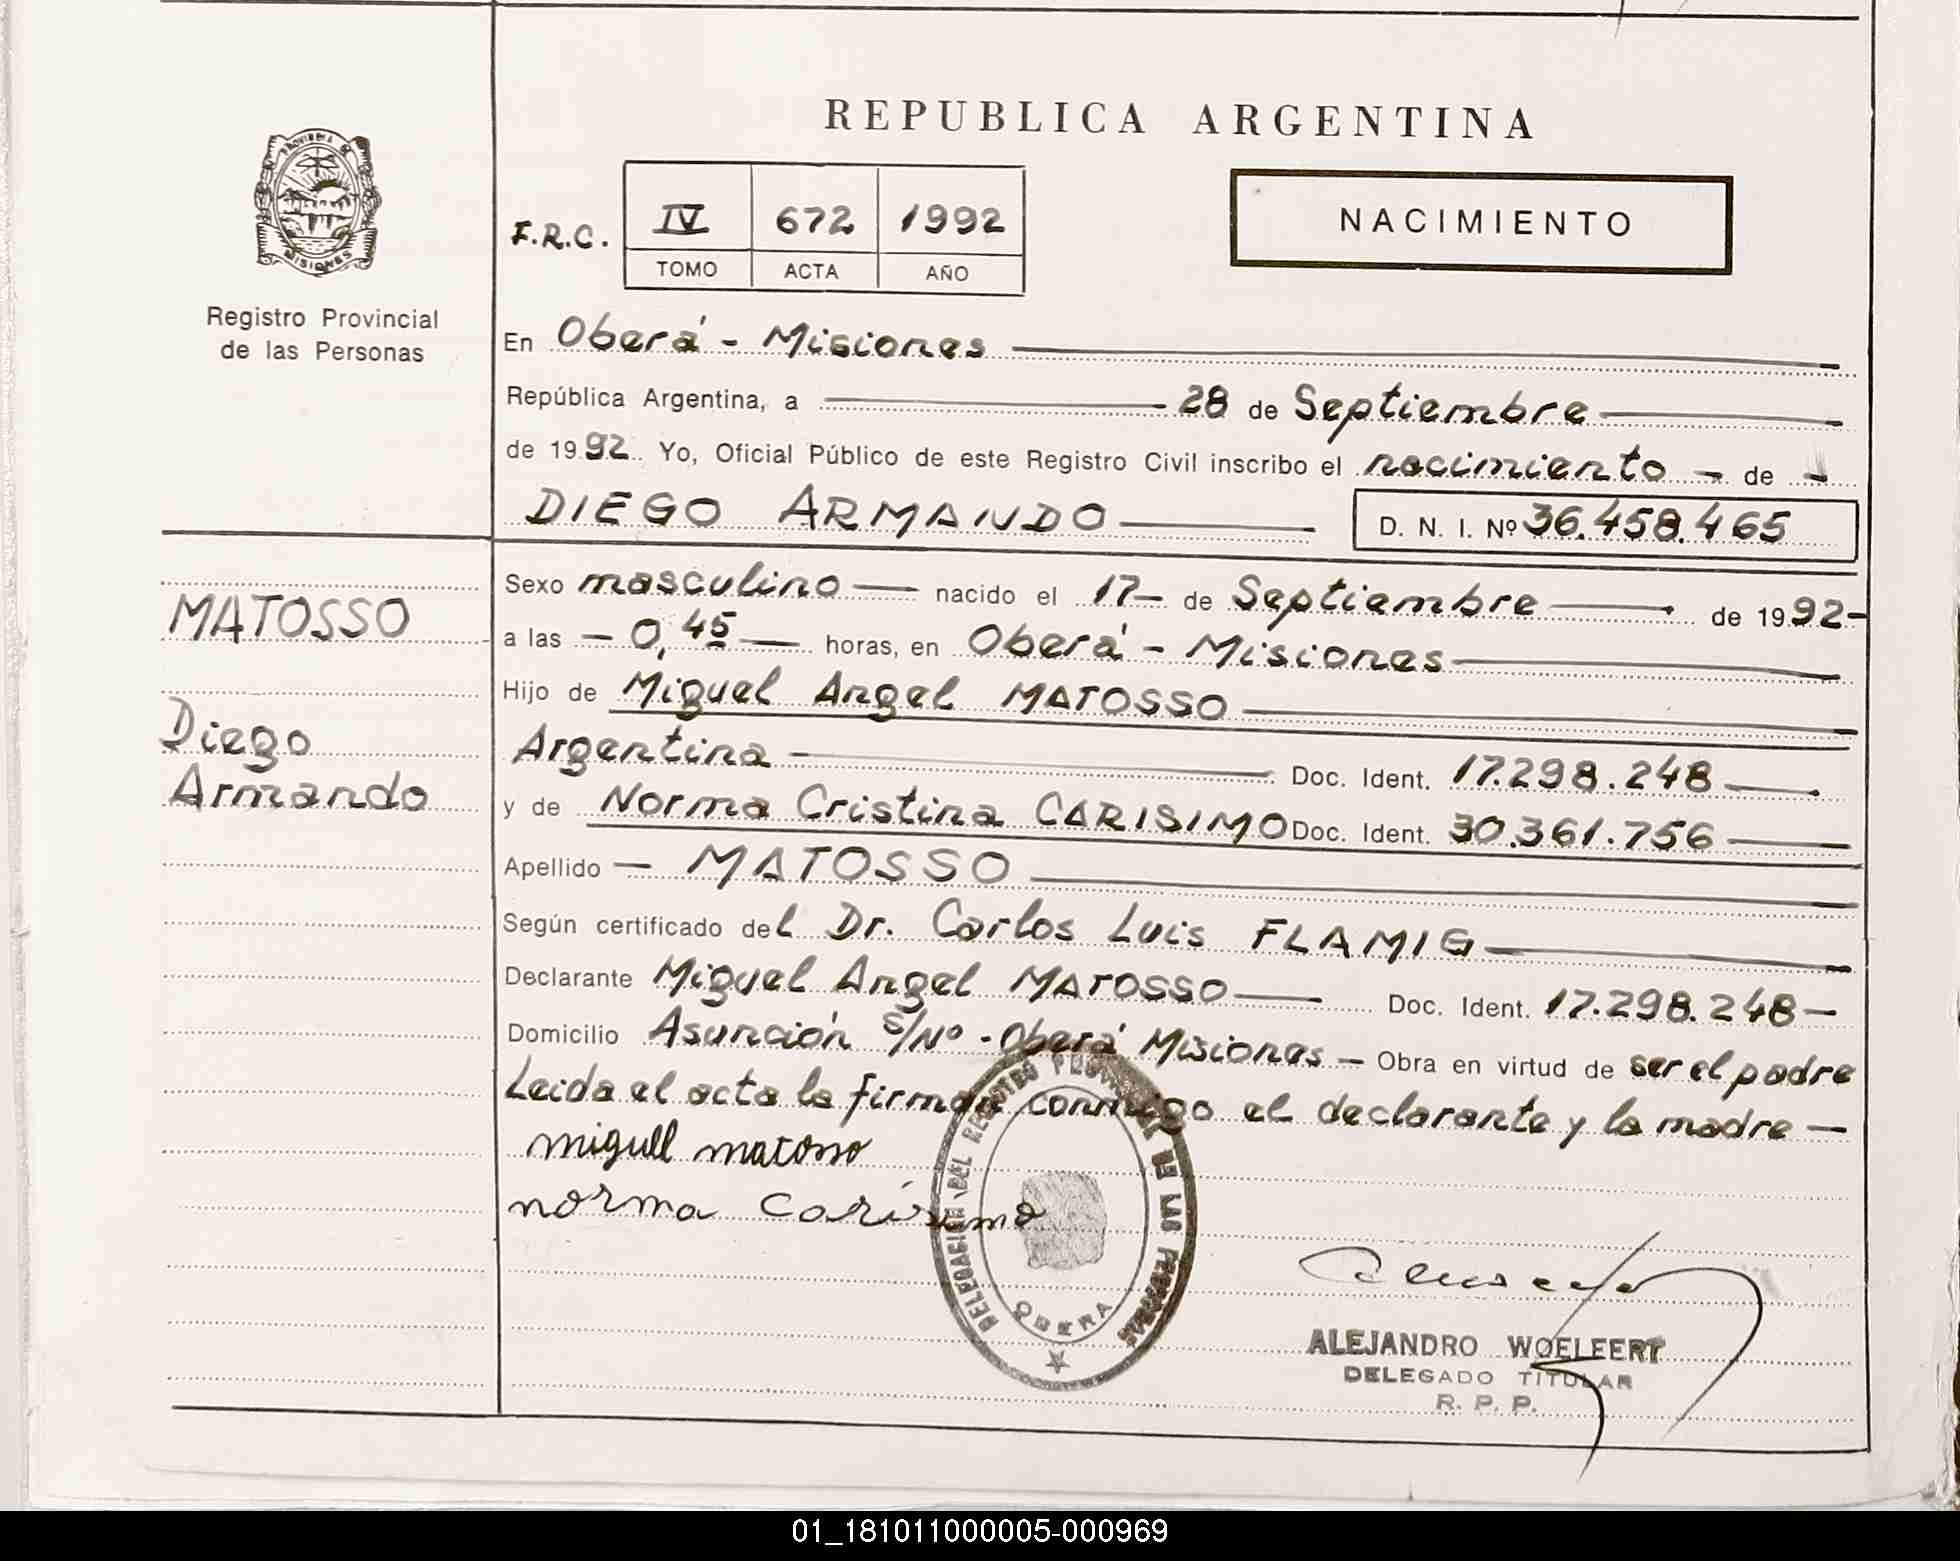 REPUBLICA ARGENTINA
PROVINCIA DE
MISIONES
Registro Provincial
de las Personas
F.R.C. IV 672 1992
TOMO ACTA AÑO
NACIMIENTO
En Oberá - Misiones
República Argentina, a 28 de Septiembre
de 1992. Yo, Oficial Público de este Registro Civil inscribo el nacimiento - de -
DIEGO ARMANDO D. N. I. Nº 36.458.465
MATOSSO
Diego
Armando
Sexo masculino nacido el 17 - de Septiembre de 1992 -
a las - 0,45 horas, en Oberá - Misiones
Hijo de Miguel Angel MATOSSO
Argentina Doc. Ident. 17.298.248
y de Norma Cristina CARISIMO Doc. Ident. 30.361.756
Apellido - MATOSSO
Según certificado del Dr. Carlos Luis FLAMIG
Declarante Miguel Angel MATOSSO Doc. Ident. 17.298.248 -
Domicilio Asunción S/Nº - Oberá Misiones - Obra en virtud de ser el padre
Leida el acta la firman conmigo el declarante y la madre -
miguel matosso
norma Carisimo
DELEGACION DEL REGISTRO PROVINCIAL DE LAS PERSONAS
OBERA
ALEJANDRO WOELFERT
DELEGADO TITULAR
R. P. P.
01_181011000005-000969